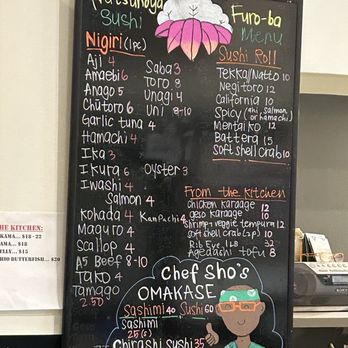 Sushi
Furo-ba
Menu
Nigiri (1pc)
Aji 4
Amaebi 6
Anago 5
Chutoro 6
Garlic tuna 4
Hamachi 4
Ika 3
Ikura 6
Iwashi 4
Salmon 4
Kohada 4
Maguro 4
Scallop 4
A5 Beef 8-10
Tako 4
Tamago
2.50
Saba 3
Toro 8
Unagi 4
Uni 8-10
Oyster 3
Kanpachi 4
Sushi Roll
Tekka/Natto 10
Negitoro 12
California 10
Spicy (ahi, salmon
or hamachi)
Mentaiko 12
Battera 15
Soft shell crab 10
From the kitchen
chicken karaage 12
geso karaage 10
shrimp + veggie tempura 12
soft shell crab (1pc) 10
Rib Eye 1LB 32
Agedashi tofu 8
Chef Sho's
OMAKASE
Sashimi 40 Sushi 60
Sashimi
25 (s)
Chirashi sushi 35
HE KITCHEN:
KAMA... $18 - 22
AMA... $18
ELLY... $15
BUTTERFISH... $20